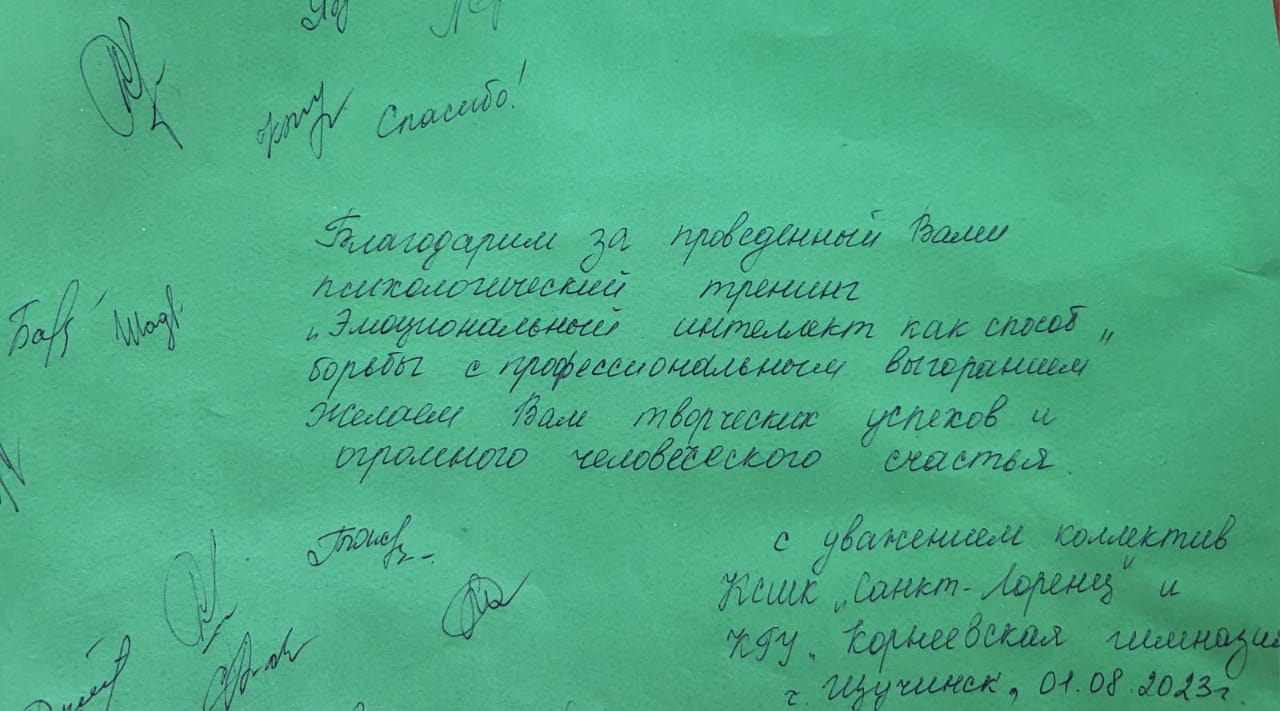 Спасибо!
Благодарим за проведенный Вами
психологический тренинг
„Эмоциональный интеллект как способ
борьбы с профессиональным выгоранием"
Желаем Вам творческих успехов и
огромного человеческого счастья.
с уважением коллектив
КСШК „Санкт-Лоренц" и
КГУ „Корнеевская гимназия
г. Щучинск, 01.08.2023г.